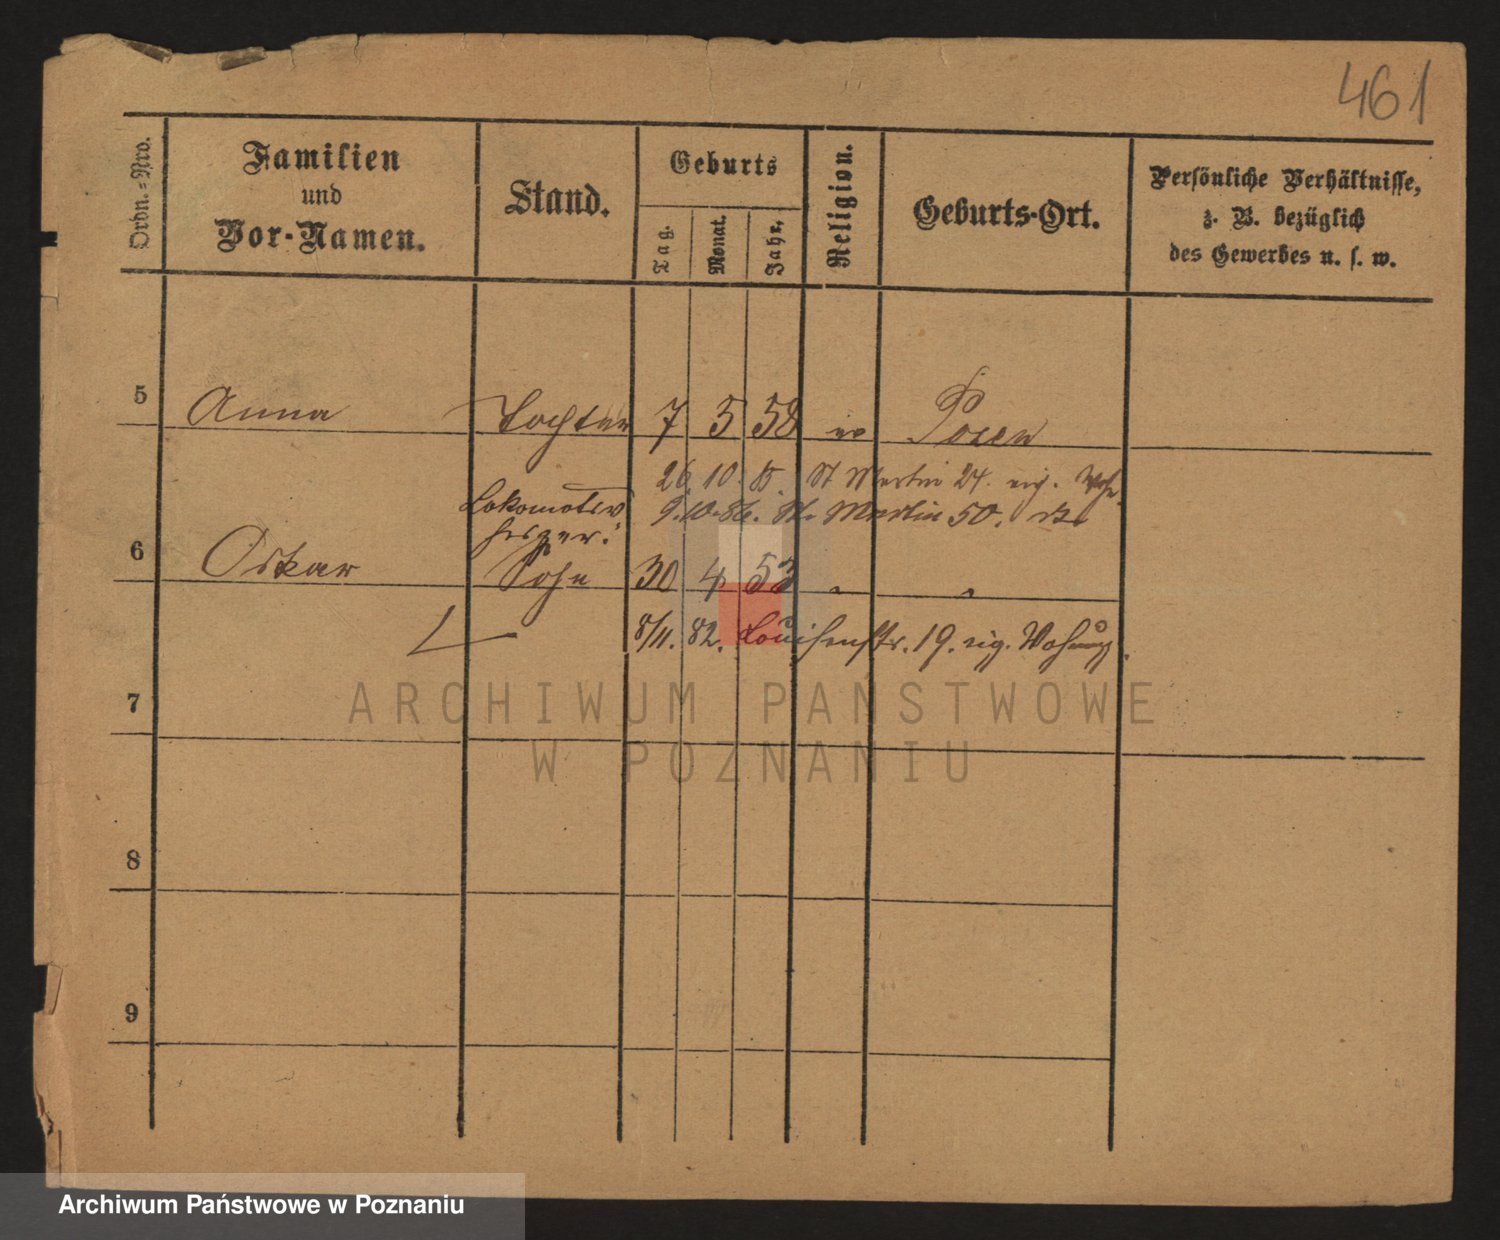 461
Ordn.=Nro.
Familien
und
Vor-Namen.
Stand.
Geburts
Tag.
Monat.
Jahr.
Religion.
Geburts-Ort.
Persönliche Verhältnisse,
z. B. bezüglich
des Gewerbes u. s. w.
5 Anna Tochter 7 5 58 ev Posen
26. 10. 85. St Martin 24. eig. Wohn.
Lokomotiv 9. 10. 86. St. Martin 50.
heizer.
6 Oskar Sohn 30 4 53 " "
8/11. 82. Louisenstr. 19. eig. Wohnung.
7
8
9
ARCHIWUM PAŃSTWOWE
W POZNANIU
Archiwum Państwowe w Poznaniu